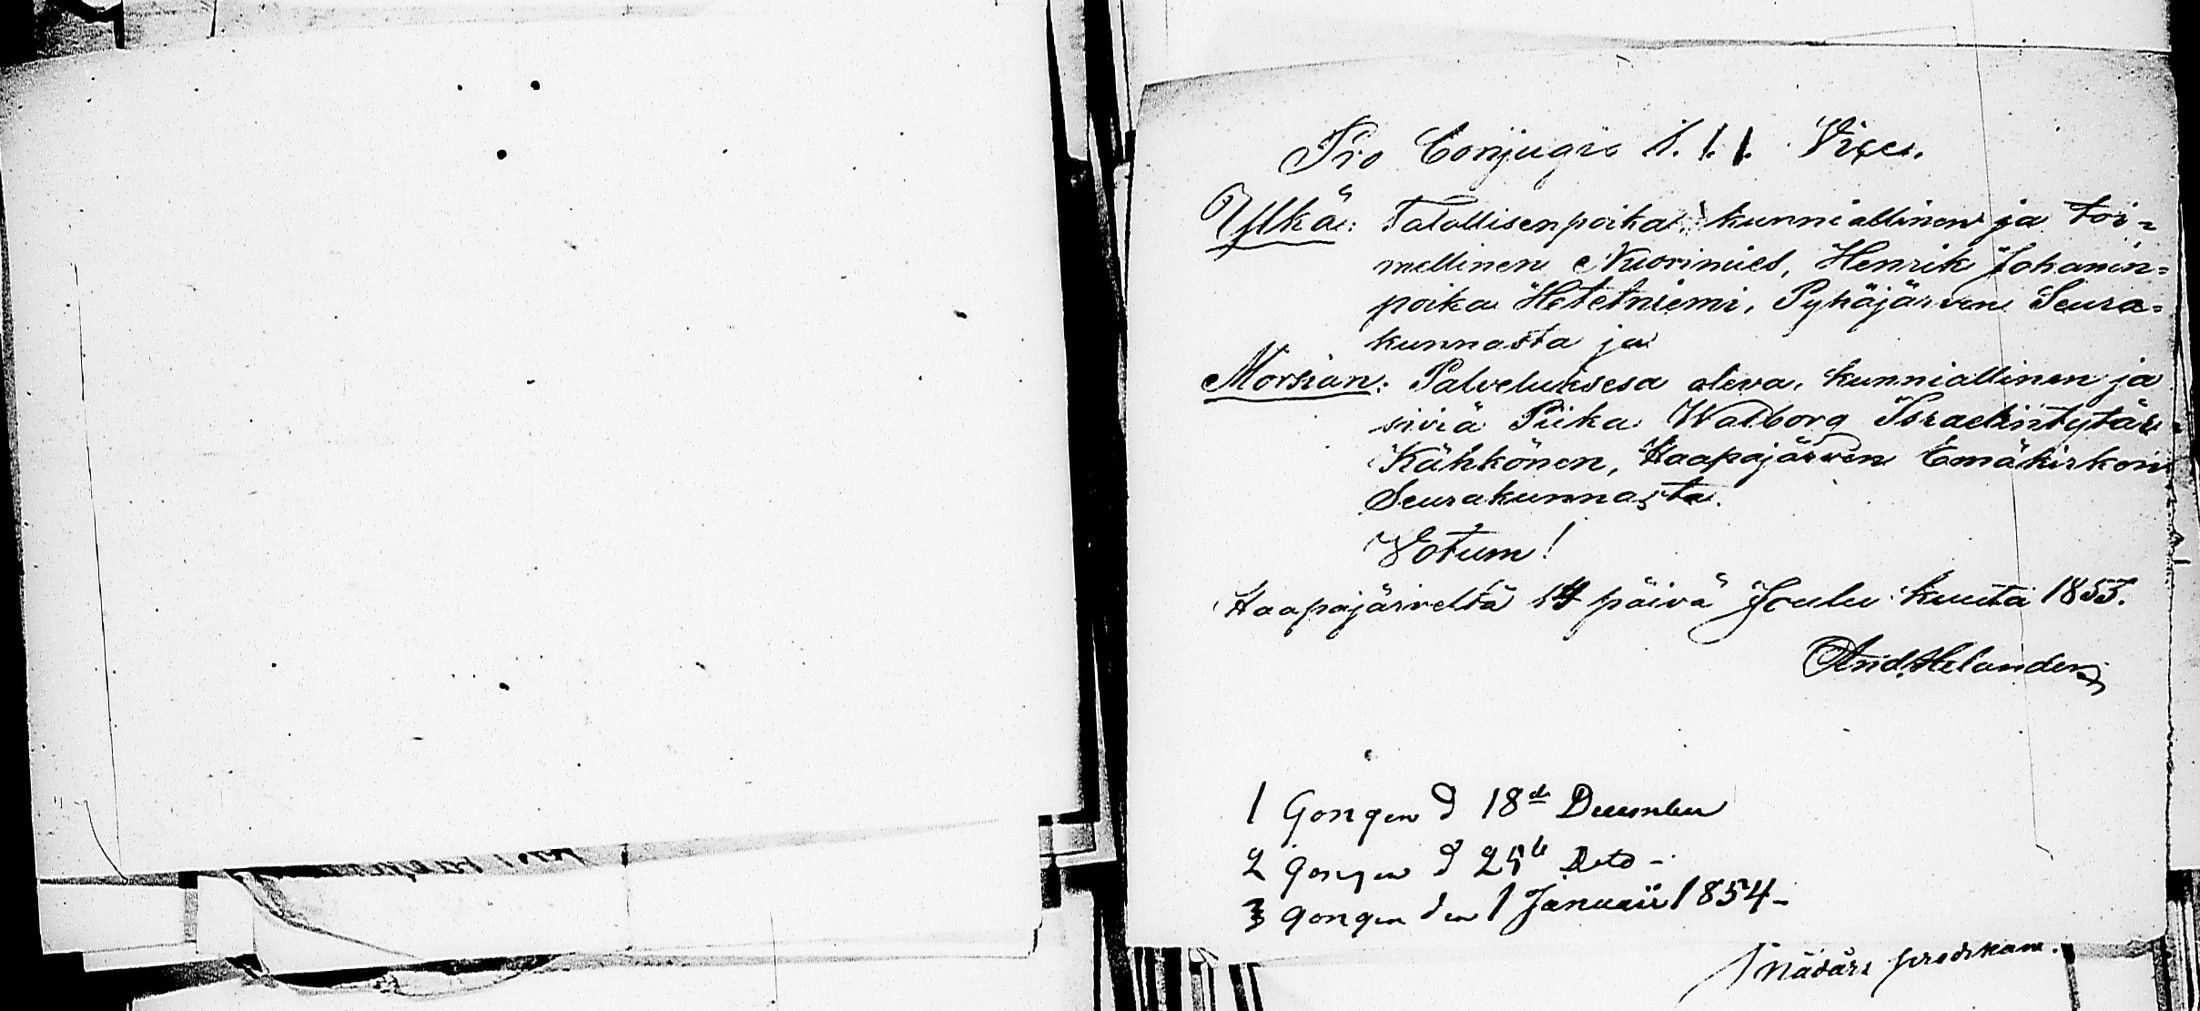 Pro Conjugio 1. 1. 1. Vice.
Ylkä: Talollisenpoika kunniallinen ja toi=
mellinen Nuorimies, Henrik Johanin=
poika Hetetniemi, Pyhäjärven Seura=
kunnasta ja
Morsian: Palveluksesa oleva, kunniallinen ja
siviä Piika Walborg Israelintytär
Kähkönen, Haapajärven Emäkirkon
Seurakunnasta.
Votum!
Haapajärveltä 14 päivä Joulu kuuta 1853.
And. Helander
1 Gongen d 18de December
2 gongen d 25te Dito -
3 gongen den 1 Januarii 1854-